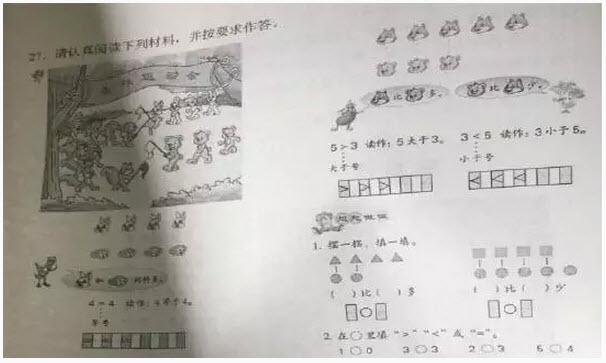 27. 请认真阅读下列材料，并按要求作答。
森林运动会
和 同样多。
4 = 4 读作：4等于4。
等号
比 多。
比 少。
5 > 3 读作：5大于3。
大于号
3 < 5 读作：3小于5。
小于号
> > >
< < <
想想做做
1. 摆一摆，填一填。
( ) 比 ( ) 多
( ) 比 ( ) 少
2. 在○里填“>”“<”或“=”。
1○0 3○3 2○3 5○4